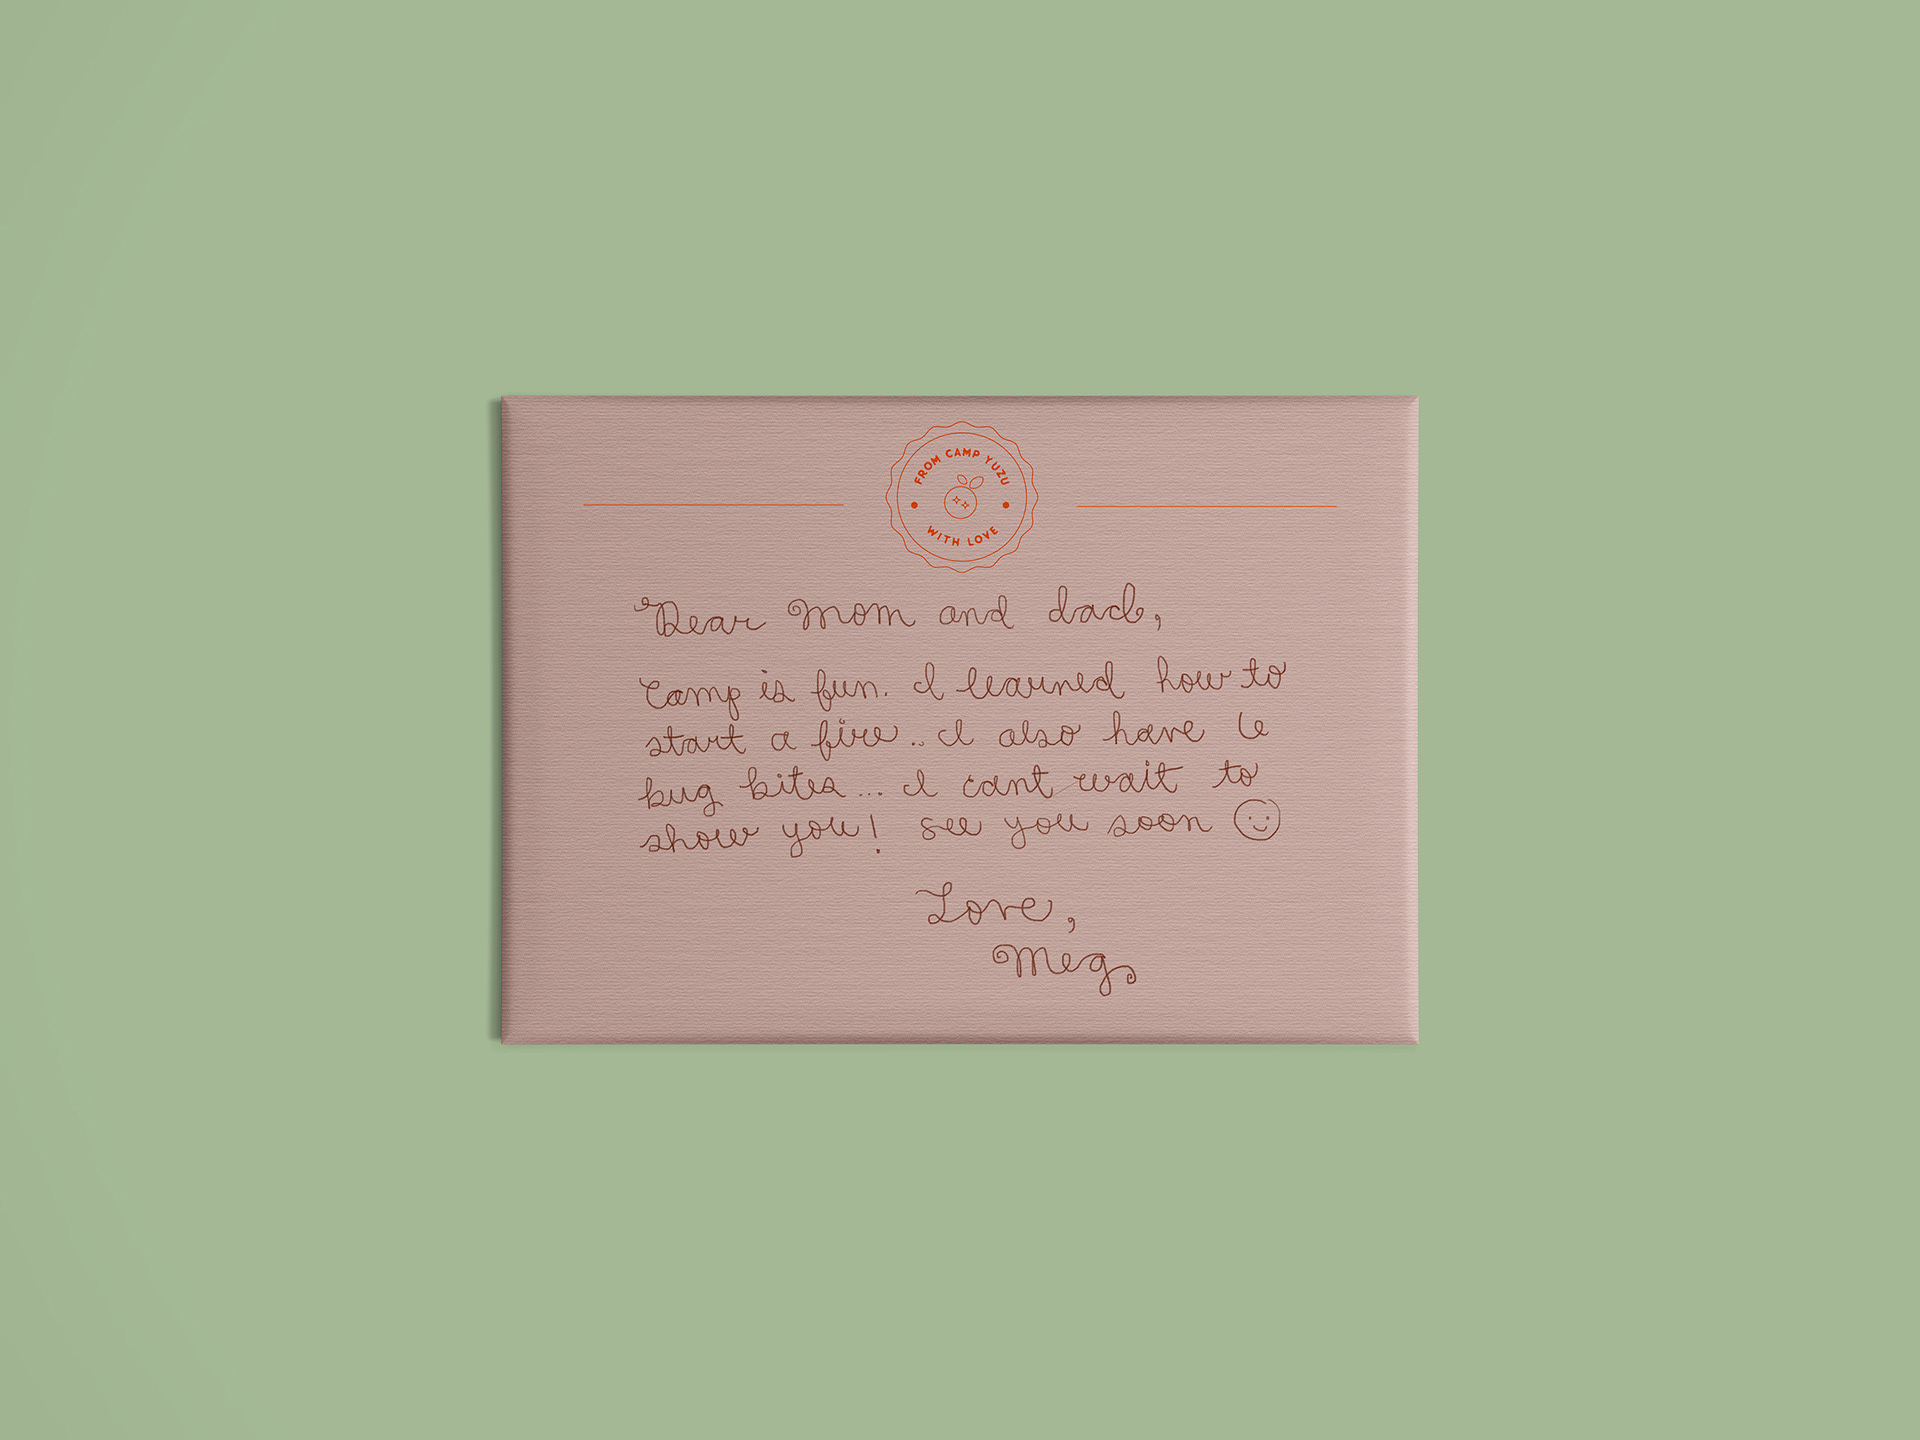 FROM CAMP YUZU
WITH LOVE
Dear Mom and dad,
Camp is fun. I learned how to
start a fire.. I also have 6
bug bites... I cant wait to
show you! See you soon
Love,
Meg